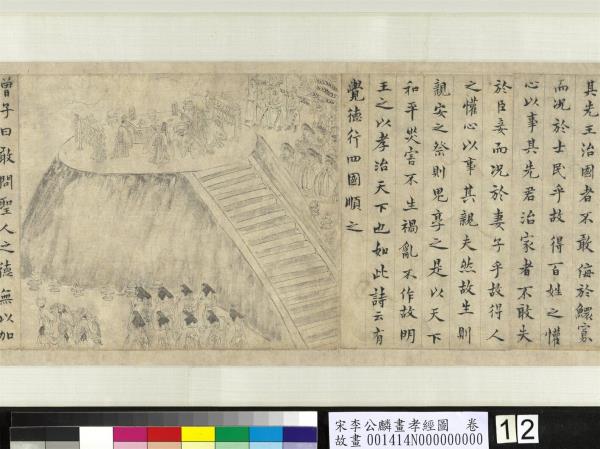 其先王治國者不敢侮於鰥寡
而況於士民乎故得百姓之懽
心以事其先君治家者不敢失
於臣妾而況於妻子乎故得人
之懽心以事其親夫然故生則
親安之祭則鬼享之是以天下
和平災害不生禍亂不作故明
王之以孝治天下也如此詩云有
覺德行四國順之
曾子曰敢問聖人之德無以加
宋李公麟畫孝經圖 卷
故畫 001414N000000000
12